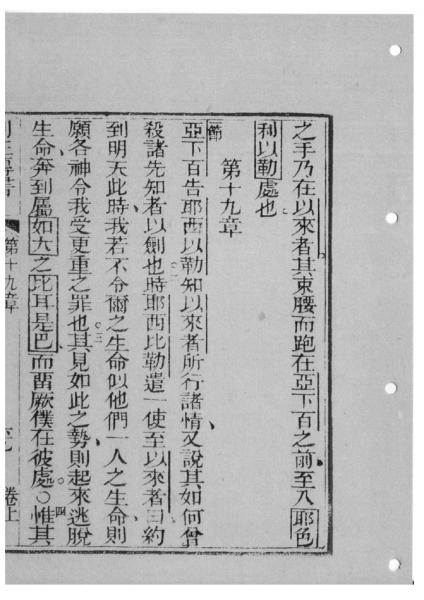 之手乃在以來者其束腰而跑在亞下百之前至入耶色
利以勒處也
第十九章
節
亞下百告耶西以勒知以來者所行諸情又說其如何曾
殺諸先知者以劍也二時耶西比勒遣一使至以來者曰約
到明天此時我若不令爾之生命似他們一人之生命則
願各神令我受更重之罪也三其見如此之勢則起來逃脫
生命奔到屬如大之比耳是巴而畱厥僕在彼處○四惟其
第十九章
卷上